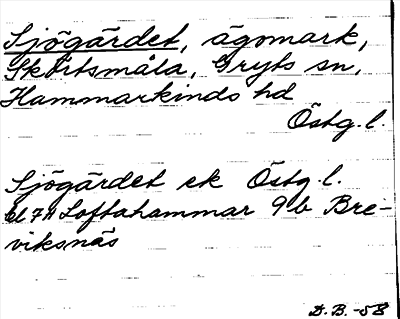 Sjögärdet, ägomark,
Skörtsmåla, Gryts sn,
Hammarkinds hd
Östg. l.
Sjögärdet ek Östg. l.
bl 7H Loftahammar 9b Bre-
viksnäs
D.B. -58